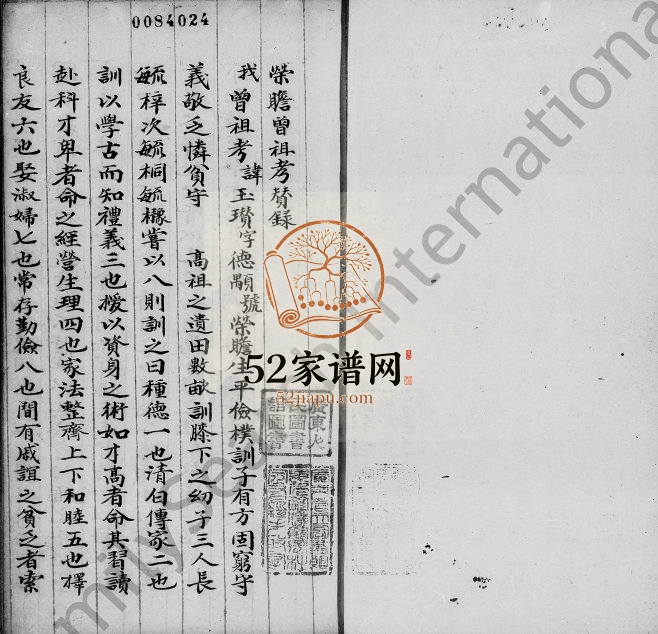 0084024
榮瞻曾祖考贊錄
我曾祖考諱玉瓚字德顒號榮瞻生平儉樸訓子有方固窮守
義敬乏憐貧守 高祖之遺田數畝訓膝下之幼子三人長
毓梓次毓桐毓櫞嘗以八則訓之曰種德一也清白傳家二也
訓以學古而知禮義三也授以資身之術如才高者命其習讀
赴科才卑者命之經營生理四也家法整齊上下和睦五也擇
良友六也娶淑婦七也常存勤儉八也間有戚誼之貧乏者索
52家谱网
52jiapu.com
International